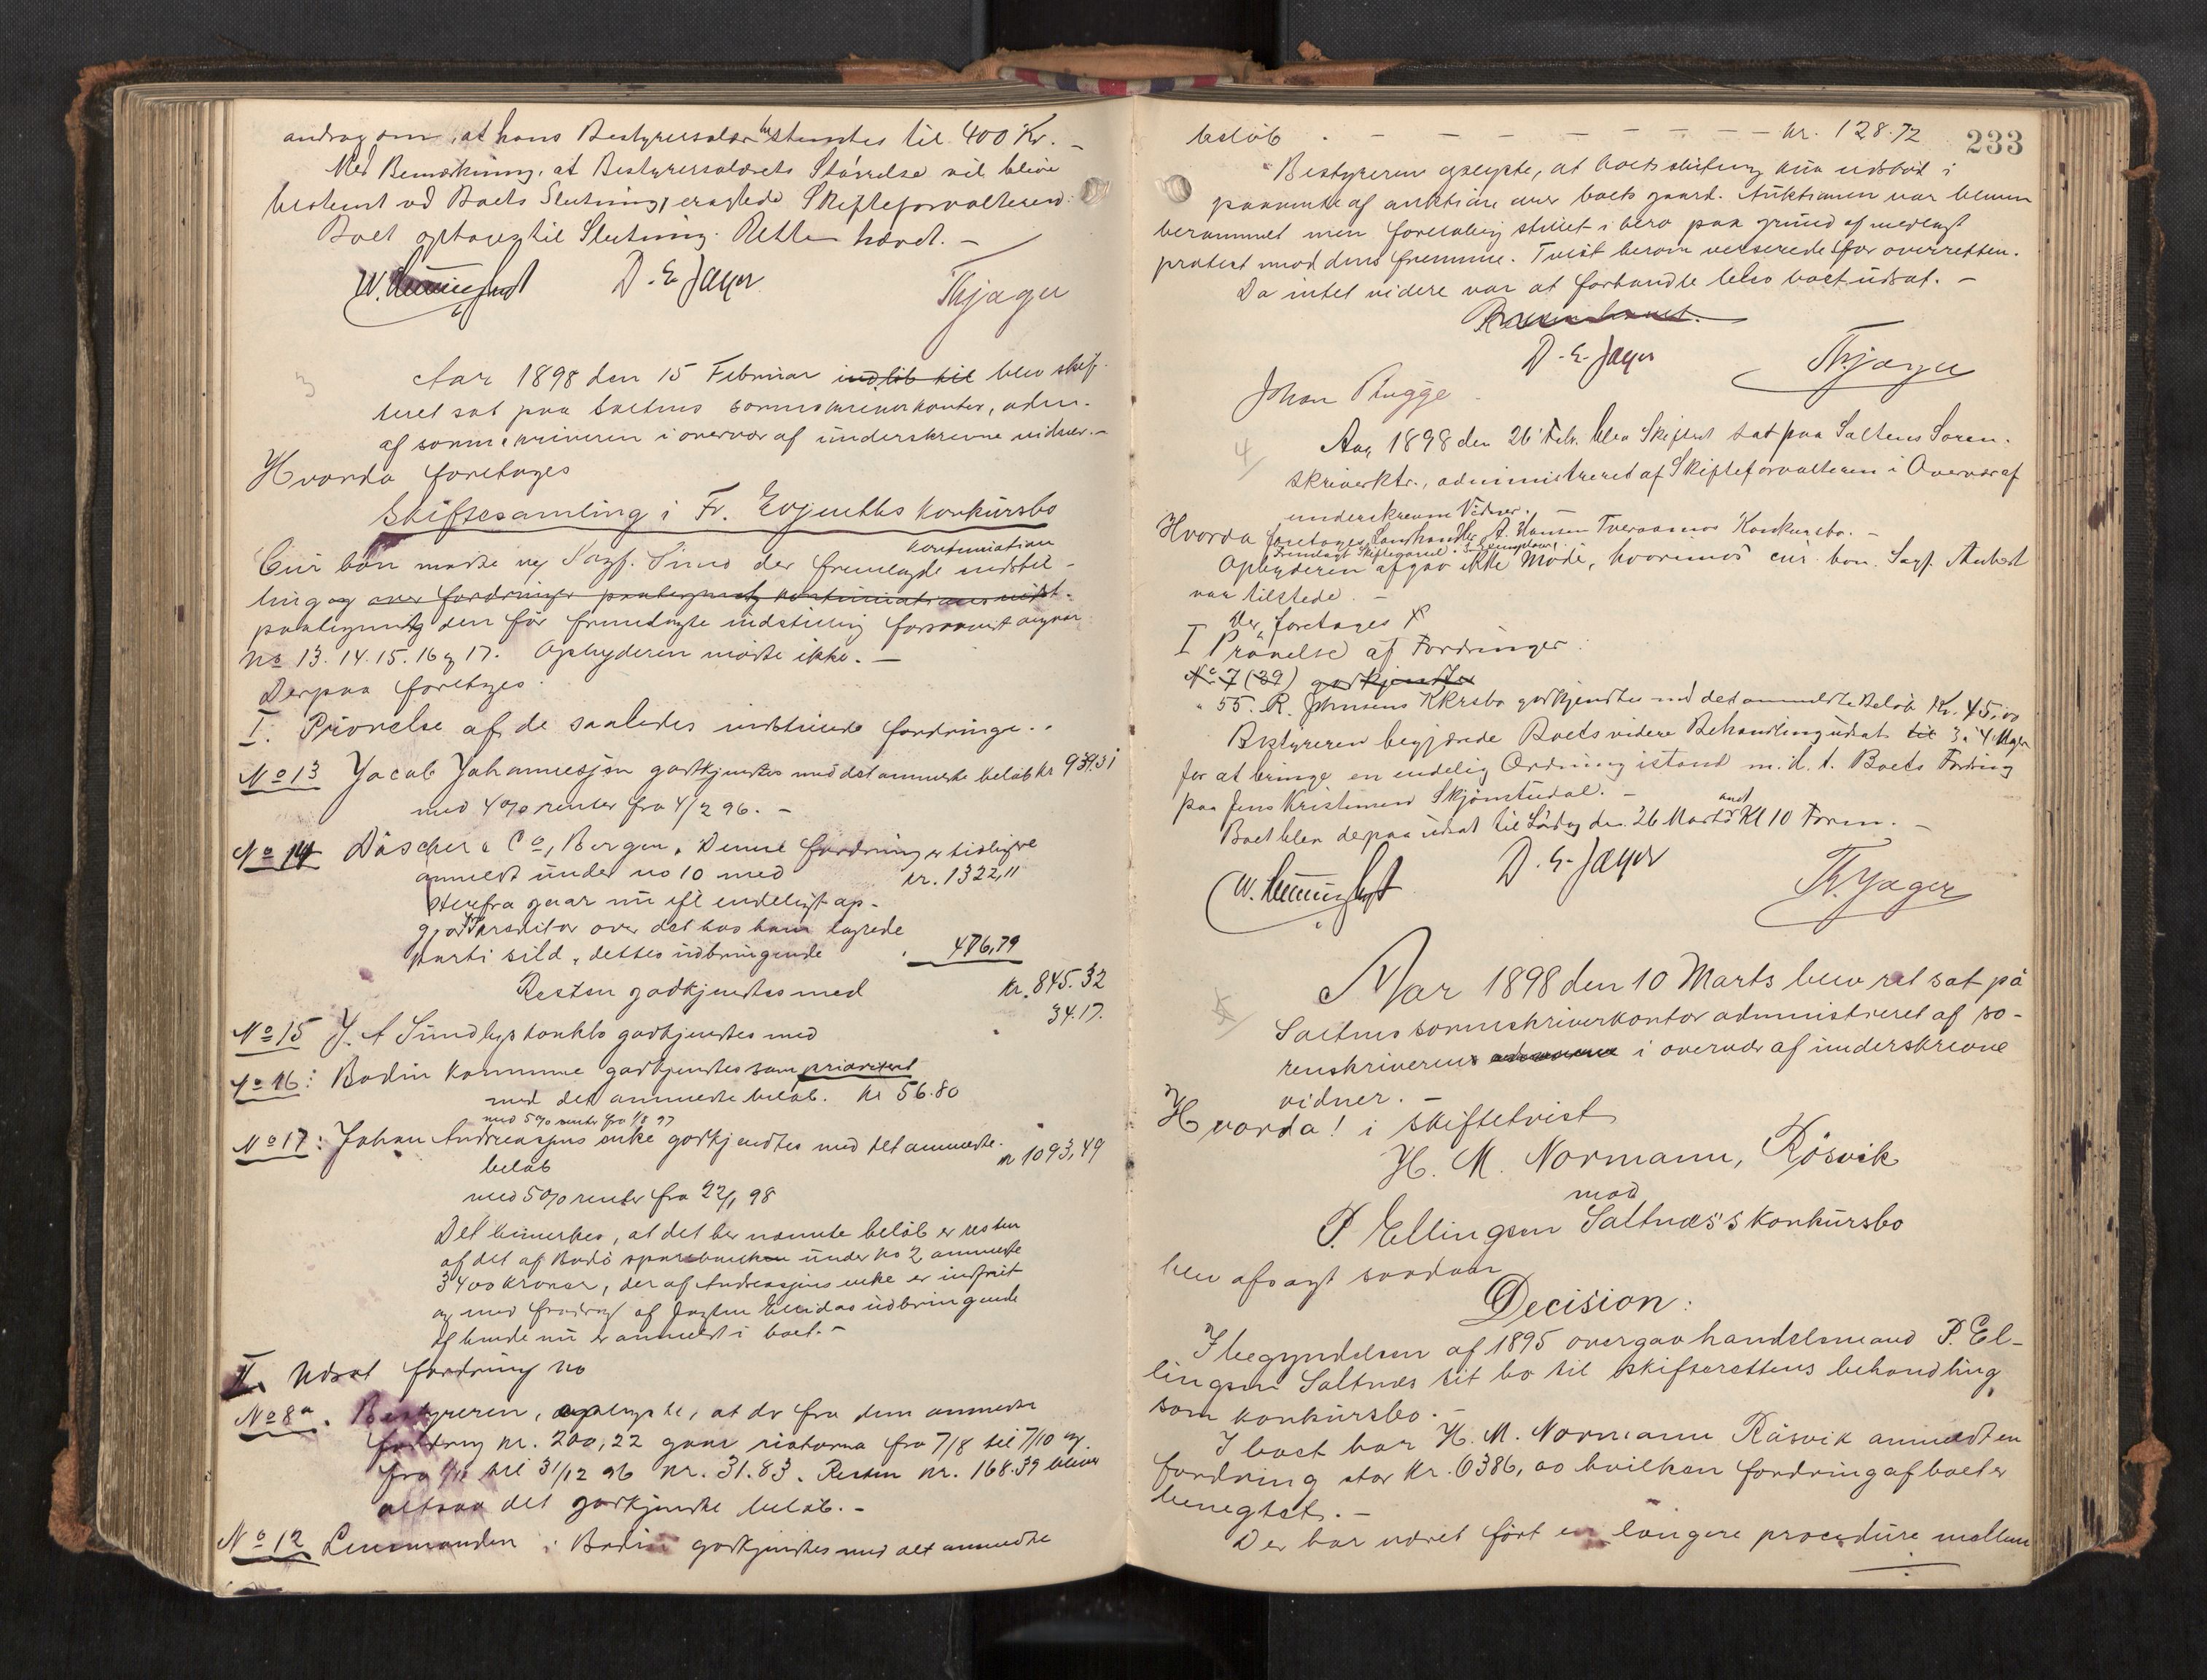 androg om, at hans Bestyrersalær bestemtes til 400 Kr. –
Med Bemærkning, at Bestyrersalærets Størrelse vil blive
bestemt ved Boets Slutning, eragtede Skifteforvalteren:
Boet optages til Slutning. Retten hævet. –
D. E. Jager
Th Jager
3
Aar 1898 den 15 Februar indløb til blev skif-
teret sat paa Saltens sorenskriverkontor, adm.
af sorenskriveren i overvær af underskrevne vidner. –
Hvorda foretoges
Skiftesamling i Fr. Evjenths konkursbo
Cur bon mødte ved Sagf. Sund der fremlagde indstil-
kontinuation
ling og over fordringer
paategning den før fremlagte indstilling forsaavidt angaar
No 13. 14. 15. 16 og 17. Opbyderen mødte ikke. –
Derpaa foretoges
I. Prøvelse af de saaledes indstillede fordringer.
No 13 Jacob Johannesjøn godkjendtes med det anmeldte beløb kr 939.31
med 4% renter fra 4/2 96. –
No 14 Döscher & Co, Bergen. Denne fordring er tidligere
anmeldt under no 10 med kr. 1322,11
Herefra gaar nu ifl endeligt op-
gjør over det hos ham lagrede
parti sild, dettes udbringende 476,79
Resten godkjendtes med kr. 845.32
No 15 J. A Sundbys konkbo godkjendtes med 34.17.
No 16: Bodin kommune godkjendtes som prioritert
med det anmeldte beløb. kr 56.80
med 5% renter fra 1/8 97
No 17: Johan Andreasjøns enke godkjendtes med det anmeldte
beløb kr 1093,49
med 5% renter fra 22/1 98
Det bemerkes, at det her nævnte beløb er resten
af det af Bodø sparebanken under no 2 anmeldte
3400 kroner, der af Andreasjøns enke er indfriet
og med fradrag af Jagten Ellidas udbringende
af hende nu er anmeldt i boet. –
II. Udsat fordring no
No 8a. Bestyreren, oplyste, at der fra den anmeldte
fordring kr. 200,22 gaar fra 7/8 til 7/10 og
fra til 31/12 96 kr. 31.83. Resten kr. 168.39 bliver
altsaa det godkjendte beløb. –
No 12 Lensmanden i Bodin godkjendtes med det anmeldte
233
beløb – – – – – – – – kr. 128.72
Bestyreren oplyste, at boets slutning kun udstod i
paavente af auktion over boets gaard. Auktionen var bleven
berammet men foreløbig stillet i bero paa grund af nedlagt
protest mod dens fremme. Tvist herom verserede for overretten.
Da intet videre var at forhandle blev boet udsat. –
Retten hævet.
D. E. Jager
Th. Jager
Johan Rugge
4
Aar 1898 den 26 Feb. blev Skifteret sat paa Saltens Soren-
skriverktr., administreret af Skifteforvalteren i Overvær af
underskrevne Vidner. –
Hvorda foretoges Landhandler A. Hansen Tveraamos Konkursbo. –
Fremlagt Skiftegavel i 3 Exemplarer.
Opbyderen afgav ikke Møde, hvorimod cur. bon. Sagf. Aubert
var tilstede. –
Der foretoges
I Prøvelse af Fordringer:
No 7 (39) godkjendtes
" 55. R. Johnsens Kkrsbo godkjendtes med det anmeldte Beløb Kr. 45,00
Bestyreren begjærede Boets videre Behandling udsat til 3 a 4 Uger
for at bringe en endelig Ordning istand m. h. t. Boets Fording
paa Jens Kristensen Skjønstudal. –
Boet blev derpaa udsat til Lørdag den 26 Marts Kl 10 Form. –
D. E. Jager
Th. Jager
5
Aar 1898 den 10 Marts blev ret sat på
Saltens sorenskriverkontor administreret af so-
renskriveren i overvær af underskrevne
vidner. –
Hvorda! i skiftetvist
H. M. Normann, Røsvik
mod
P. Ellingsen Saltnæs's konkursbo
blev afsagt saadan
Decision:
I begyndelsen af 1895 overgav handelsmand P. El-
lingsen Saltnæs sit bo til skifterettens behandling
som konkursbo. –
I boet har H. M. Normann Røsvik anmeldt en
fordring stor kr. 6386,00 hvilken fordring af boet er
benegtet. –
Der har været ført en længere procedure mellem